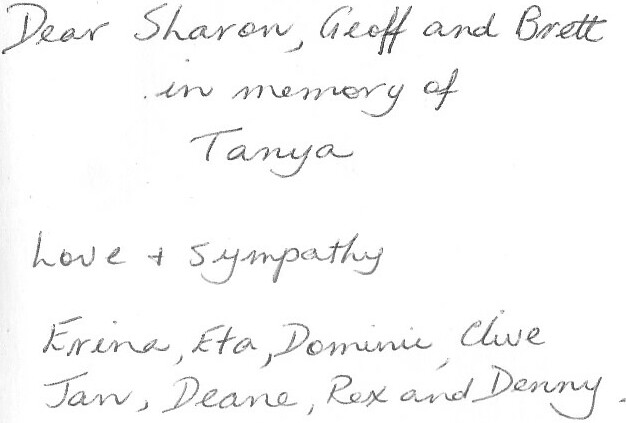 Dear Sharon, Geoff and Brett
in memory of
Tanya
Love + Sympathy
Erina, Eta, Dominic, Clive
Jan, Deane, Rex and Denny.